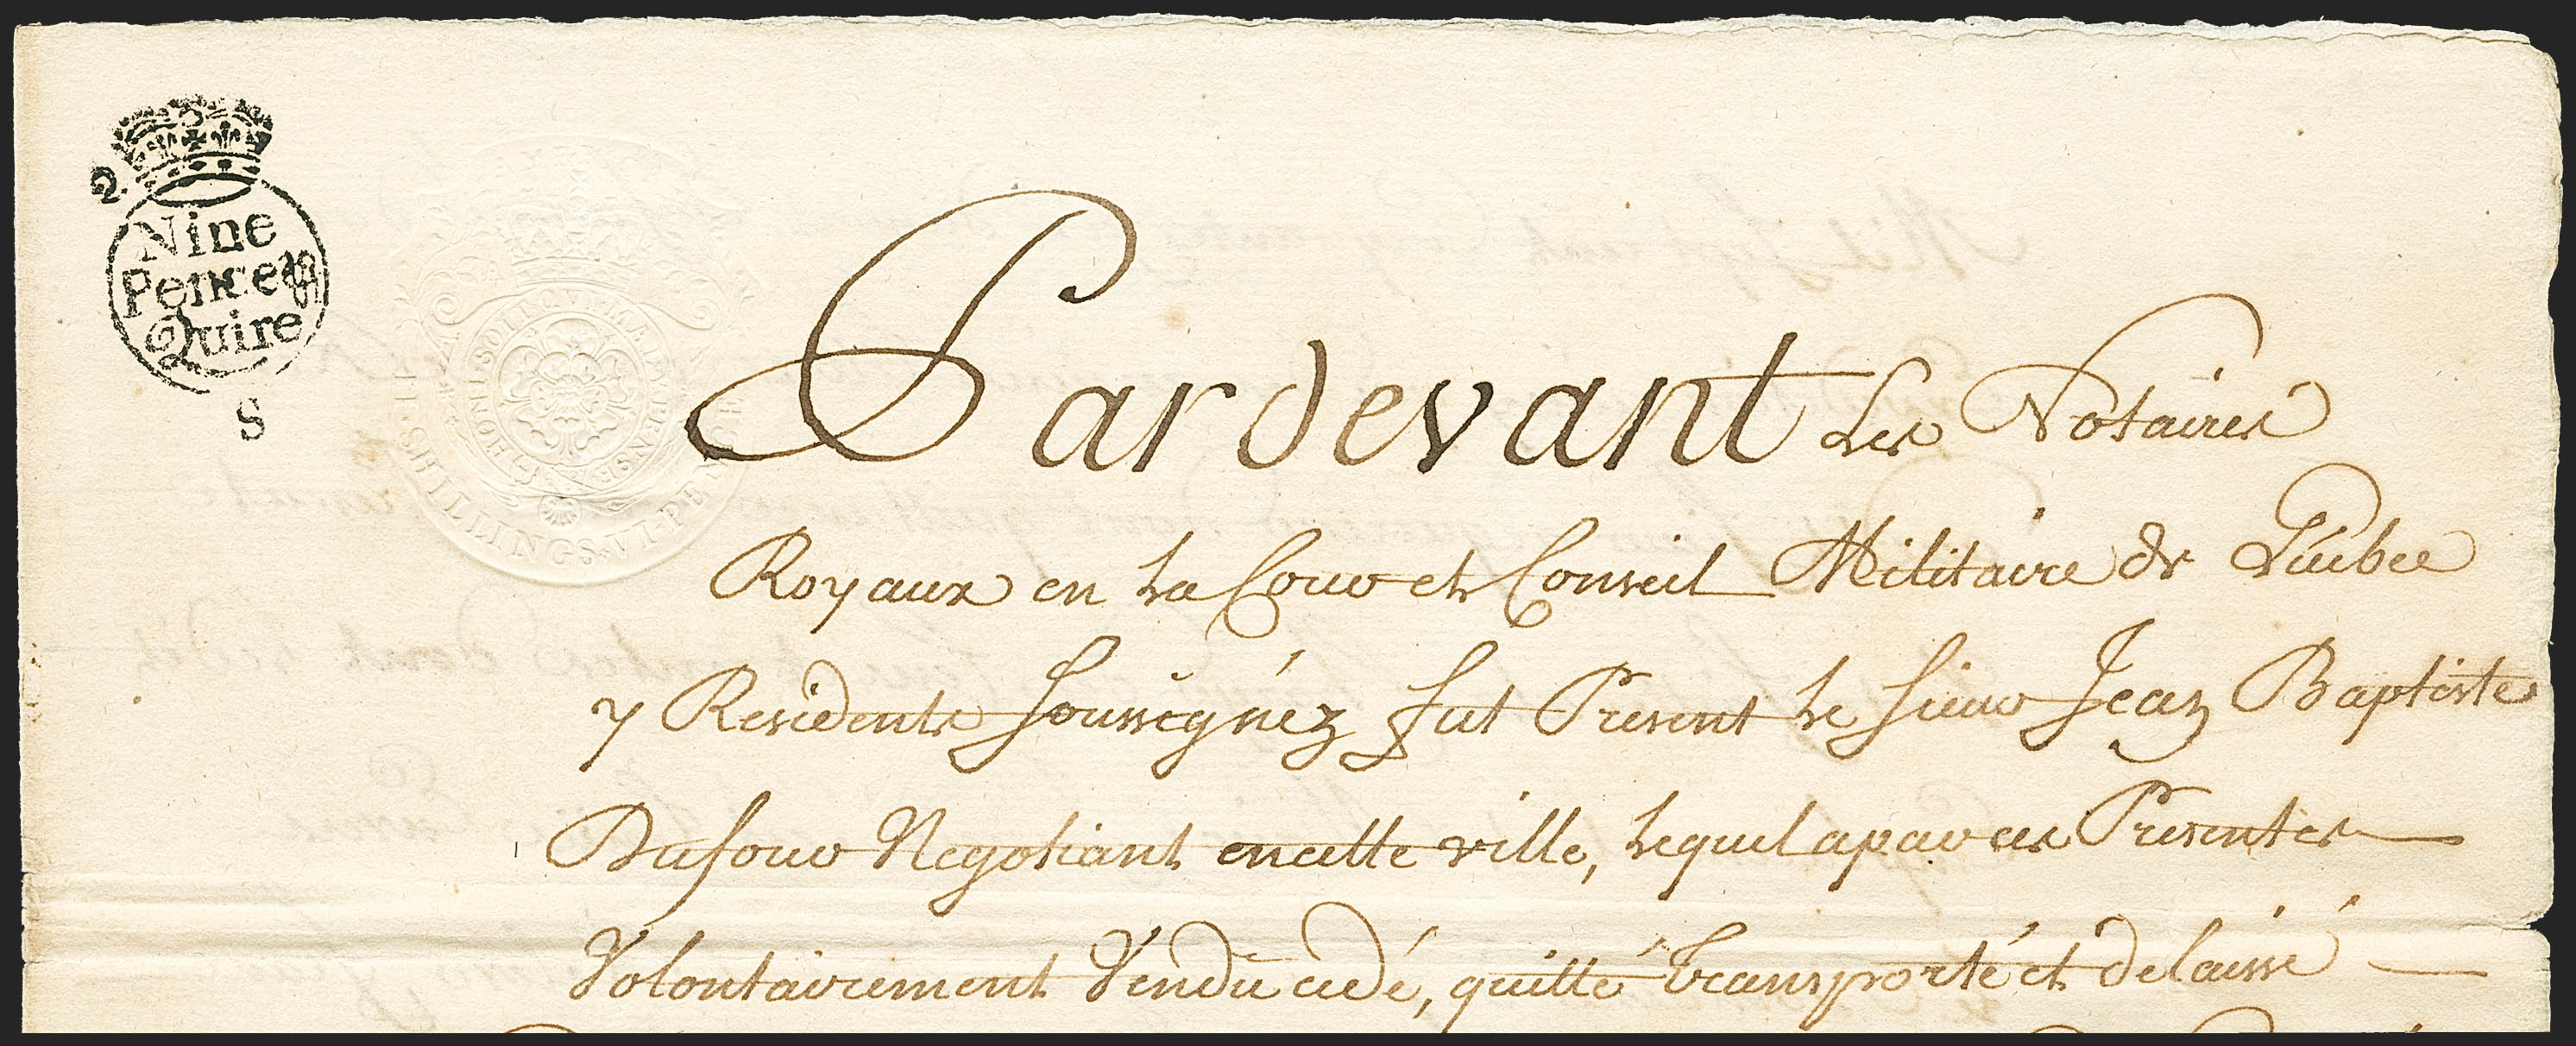 2
Nine
Pence ⅌
Quire
S
HONI · SOIT · QUI · MAL · Y · PENSE
II · SHILLINGS · VI · PENCE
Pardevant Les Notaires
Royaux en La Cour et Conseil Militaire de Québec
y Residents Soussignéz fut Present Le Sieur Jean Baptiste
Dufour Negotiant en cette ville, Lequel a par ces Presentes
Volontairement Vendu cedé, quitté Transporté et delaissé